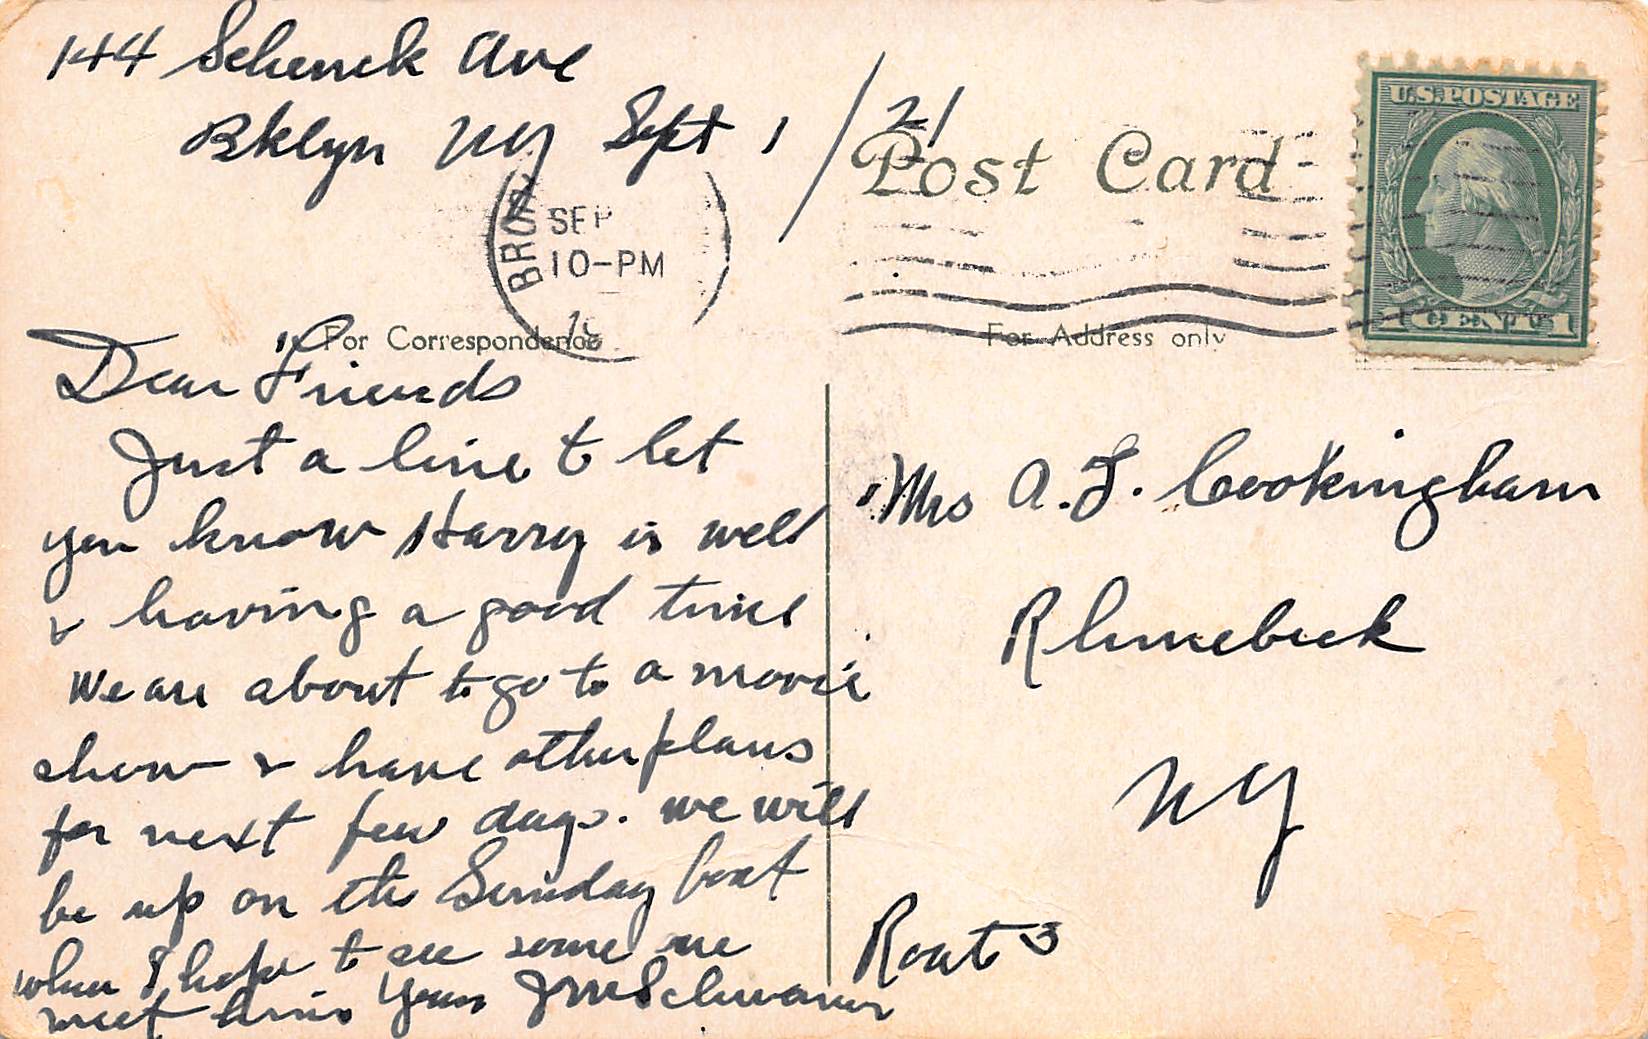 144 Schenck Ave
Bklyn NY Sept 1 / 21
Post Card
U.S. POSTAGE
SEP
10-PM
For Correspondence
For Address only
Dear Friends
Just a line to let
you know Harry is well
& having a good time
We are about to go to a movie
show & have other plans
for next few days. We will
be up on the Sunday boat
when I hope to see some one
meet him Yours
Mrs A. F. Cookingham
Rhinebeck
NY
Rout 3